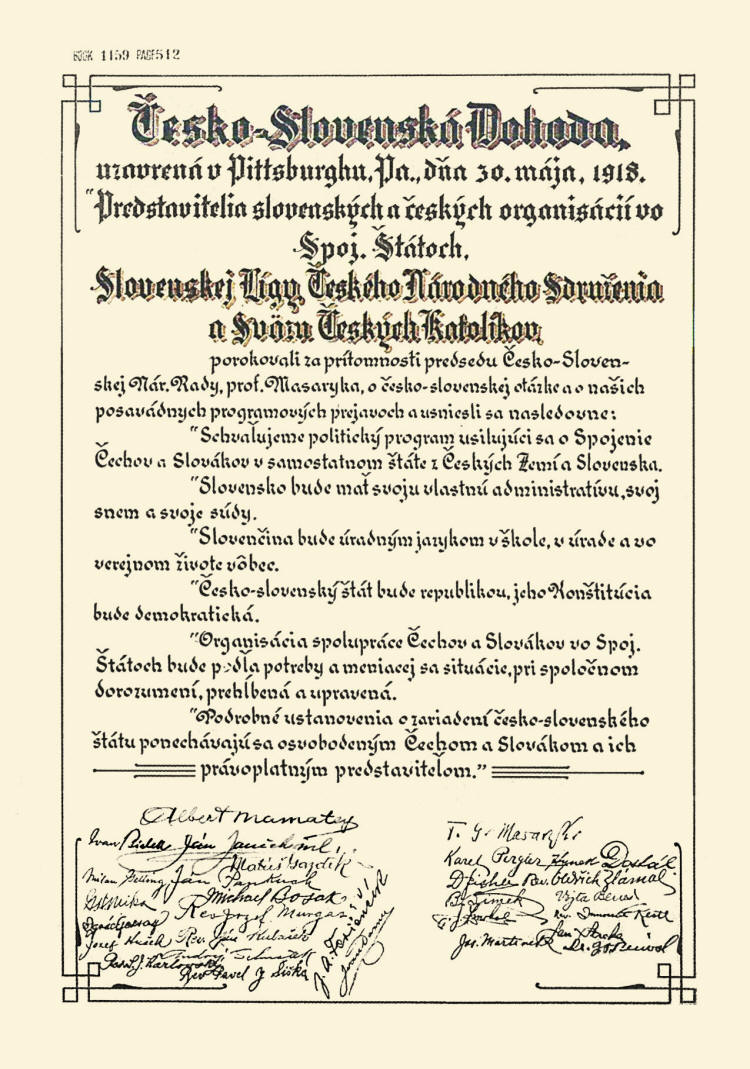 BOOK 1159 PAGE512
Česko-Slovenská Dohoda,
uzavrená v Pittsburghu, Pa., dňa 30. mája, 1918.
"Predstavitelia slovenských a českých organisácií vo
Spoj. Štátoch,
Slovenskej Ligy, Českého Národného Sdruženia
a Sväzu Českých Katolíkov
porokovali za prítomnosti predsedu Česko-Sloven-
skej Nár. Rady, prof. Masaryka, o česko-slovenskej otázke a o našich
posavádnych programových prejavoch a usniesli sa nasledovne:
"Schvaľujeme politický program usilujúci sa o Spojenie
Čechov a Slovákov v samostatnom štáte z Českých Zemí a Slovenska.
"Slovensko bude mať svoju vlastnú administratívu, svoj
snem a svoje súdy.
"Slovenčina bude úradným jazykom v škole, v úrade a vo
verejnom živote vôbec.
"Česko-slovenský štát bude republikou, jeho Konštitúcia
bude demokratická.
"Organisácia spolupráce Čechov a Slovákov vo Spoj.
Štátoch bude podľa potreby a meniacej sa situácie, pri spoločnom
dorozumení, prehĺbená a upravená.
"Podrobné ustanovenia o zariadení česko-slovenského
štátu ponechávajú sa osvobodeným Čechom a Slovákom a ich
právoplatným predstaviteľom."
Albert Mamatey
T. G. Masaryk
Ivan Bielek Ján Janček ml.
Karel Pergler Hynek Dostál
Matúš Gazdík
Milan Getting Ján Pankuch
Rev. Oldřich Zlámal
Michael Bosak
Rev. Jozef Murgaš
Rev. Ján Kubašek
Jos. Martinek
Rev Pavel J Šiška